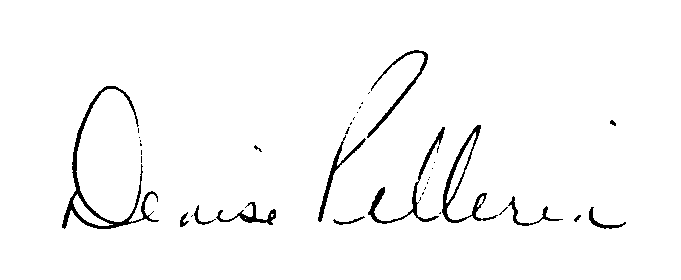 Denise Pellerin